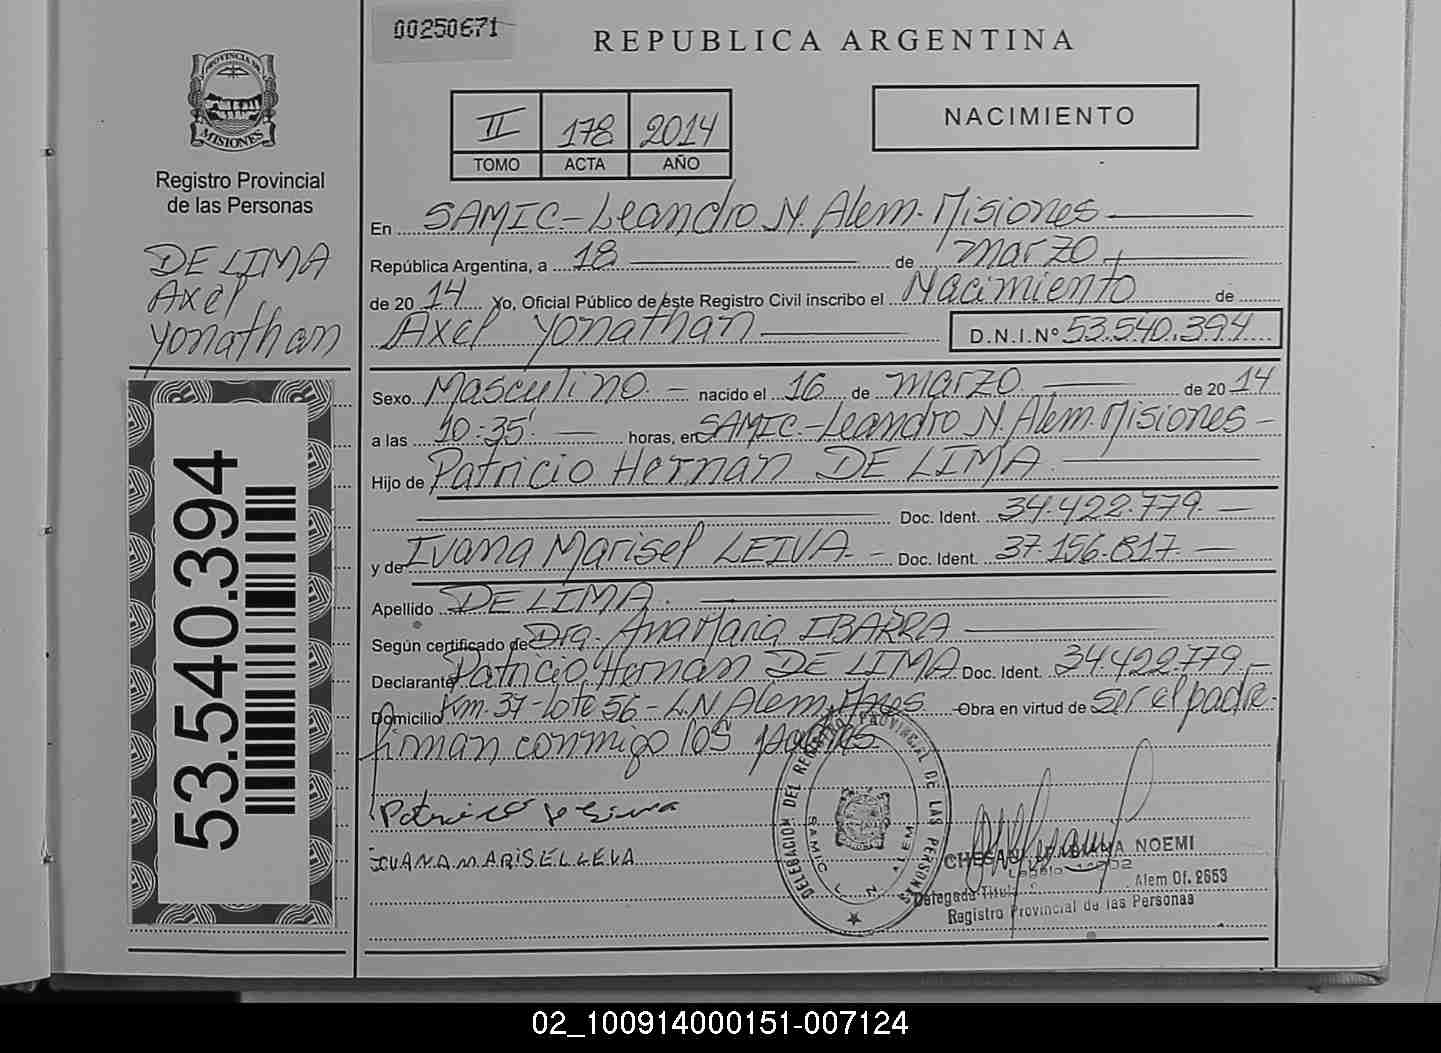 00250671
REPUBLICA ARGENTINA
PROVINCIA DE
MISIONES
Registro Provincial
de las Personas
II 178 2014
TOMO ACTA AÑO
NACIMIENTO
DE LIMA
Axel
Yonathan
En SAMIC - Leandro N. Alem - Misiones
República Argentina, a 18 de marzo
de 2014 Yo, Oficial Público de este Registro Civil inscribo el Nacimiento de
Axel Yonathan D.N.I. Nº 53.540.394
Sexo Masculino nacido el 16 de marzo de 2014
a las 10:35 horas, en SAMIC - Leandro N. Alem. Misiones
Hijo de Patricio Hernan DE LIMA
Doc. Ident. 34.422.779
y de Ivana Marisel LEIVA Doc. Ident. 37.156.817
Apellido DE LIMA
Según certificado de Dra. Ana Maria IBARRA
Declarante Patricio Hernan DE LIMA Doc. Ident. 34.422.779
Domicilio Km. 37 - Lote 56 - L.N. Alem Mnes Obra en virtud de ser el padre.
firman conmigo los padres
IVANA MARISEL LEIVA
53.540.394
DELEGACION DEL REGISTRO PROVINCIAL DE LAS PERSONAS
SAMIC L. N. ALEM
NOEMI
Alem Of. 2653
Delegada
Registro Provincial de las Personas
02_100914000151-007124